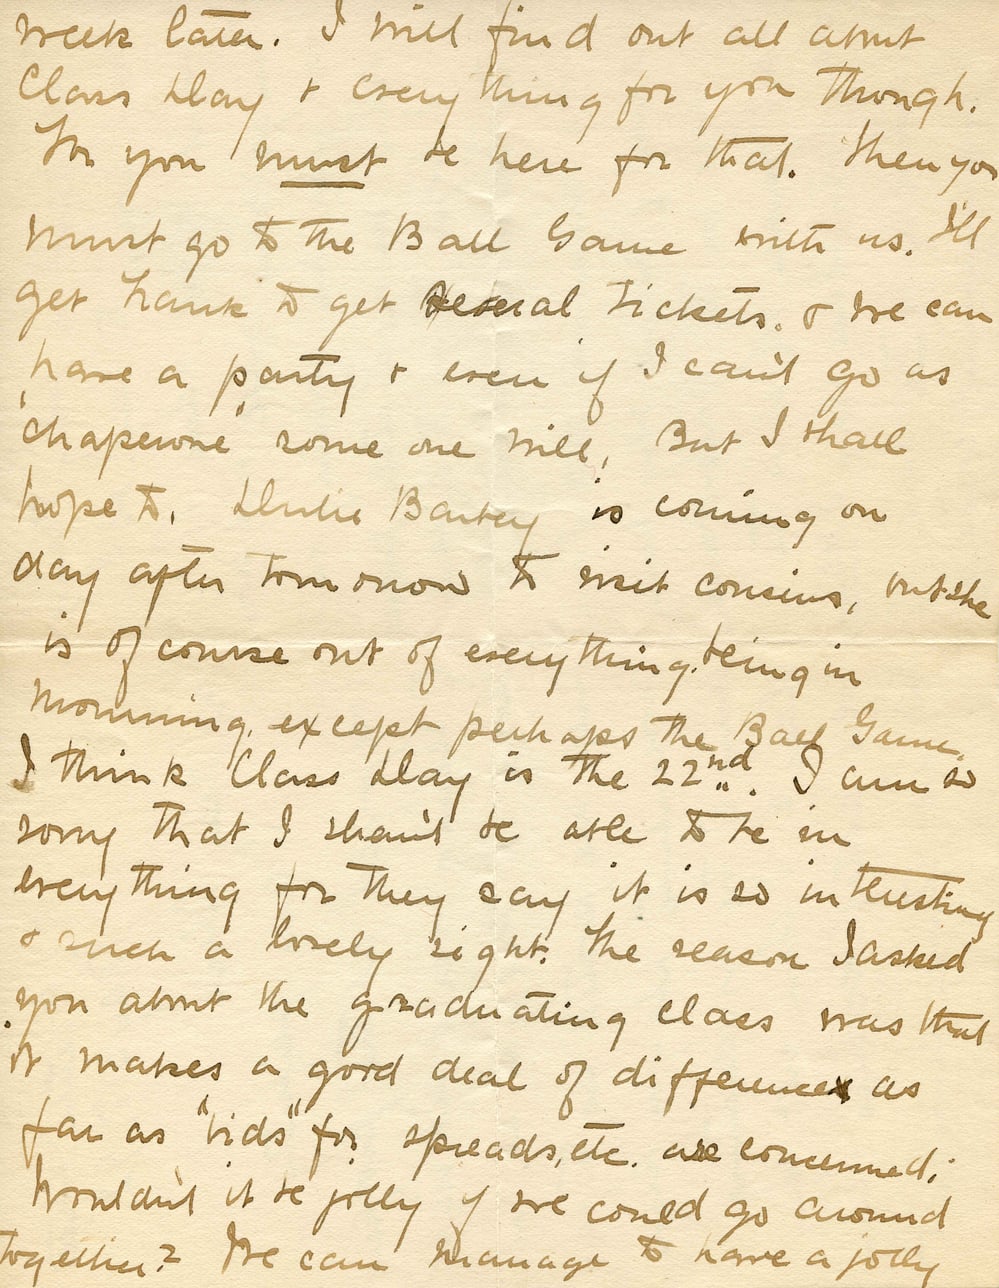 week later. I will find out all about
Class Day & everything for you though.
For you must be here for that. Then you
must go to the Ball Game with us. I'll
get Hank to get several tickets. & we can
have a party & even if I can't go as
'chaperone' some one will, But I shall
hope to. Dulie is coming on
day after tomorrow to visit cousins, but she
is of course out of everything. being in
mourning, except perhaps the Ball Game.
I think Class Day is the 22nd. I am so
sorry that I shan't be able to be in
everything for they say it is so interesting
& such a lovely sight. The reason I asked
you about the graduating class was that
it makes a good deal of difference as
far as "bids" for spreads, etc. are concerned.
Wouldn't it be jolly if we could go around
together? We can manage to have a jolly